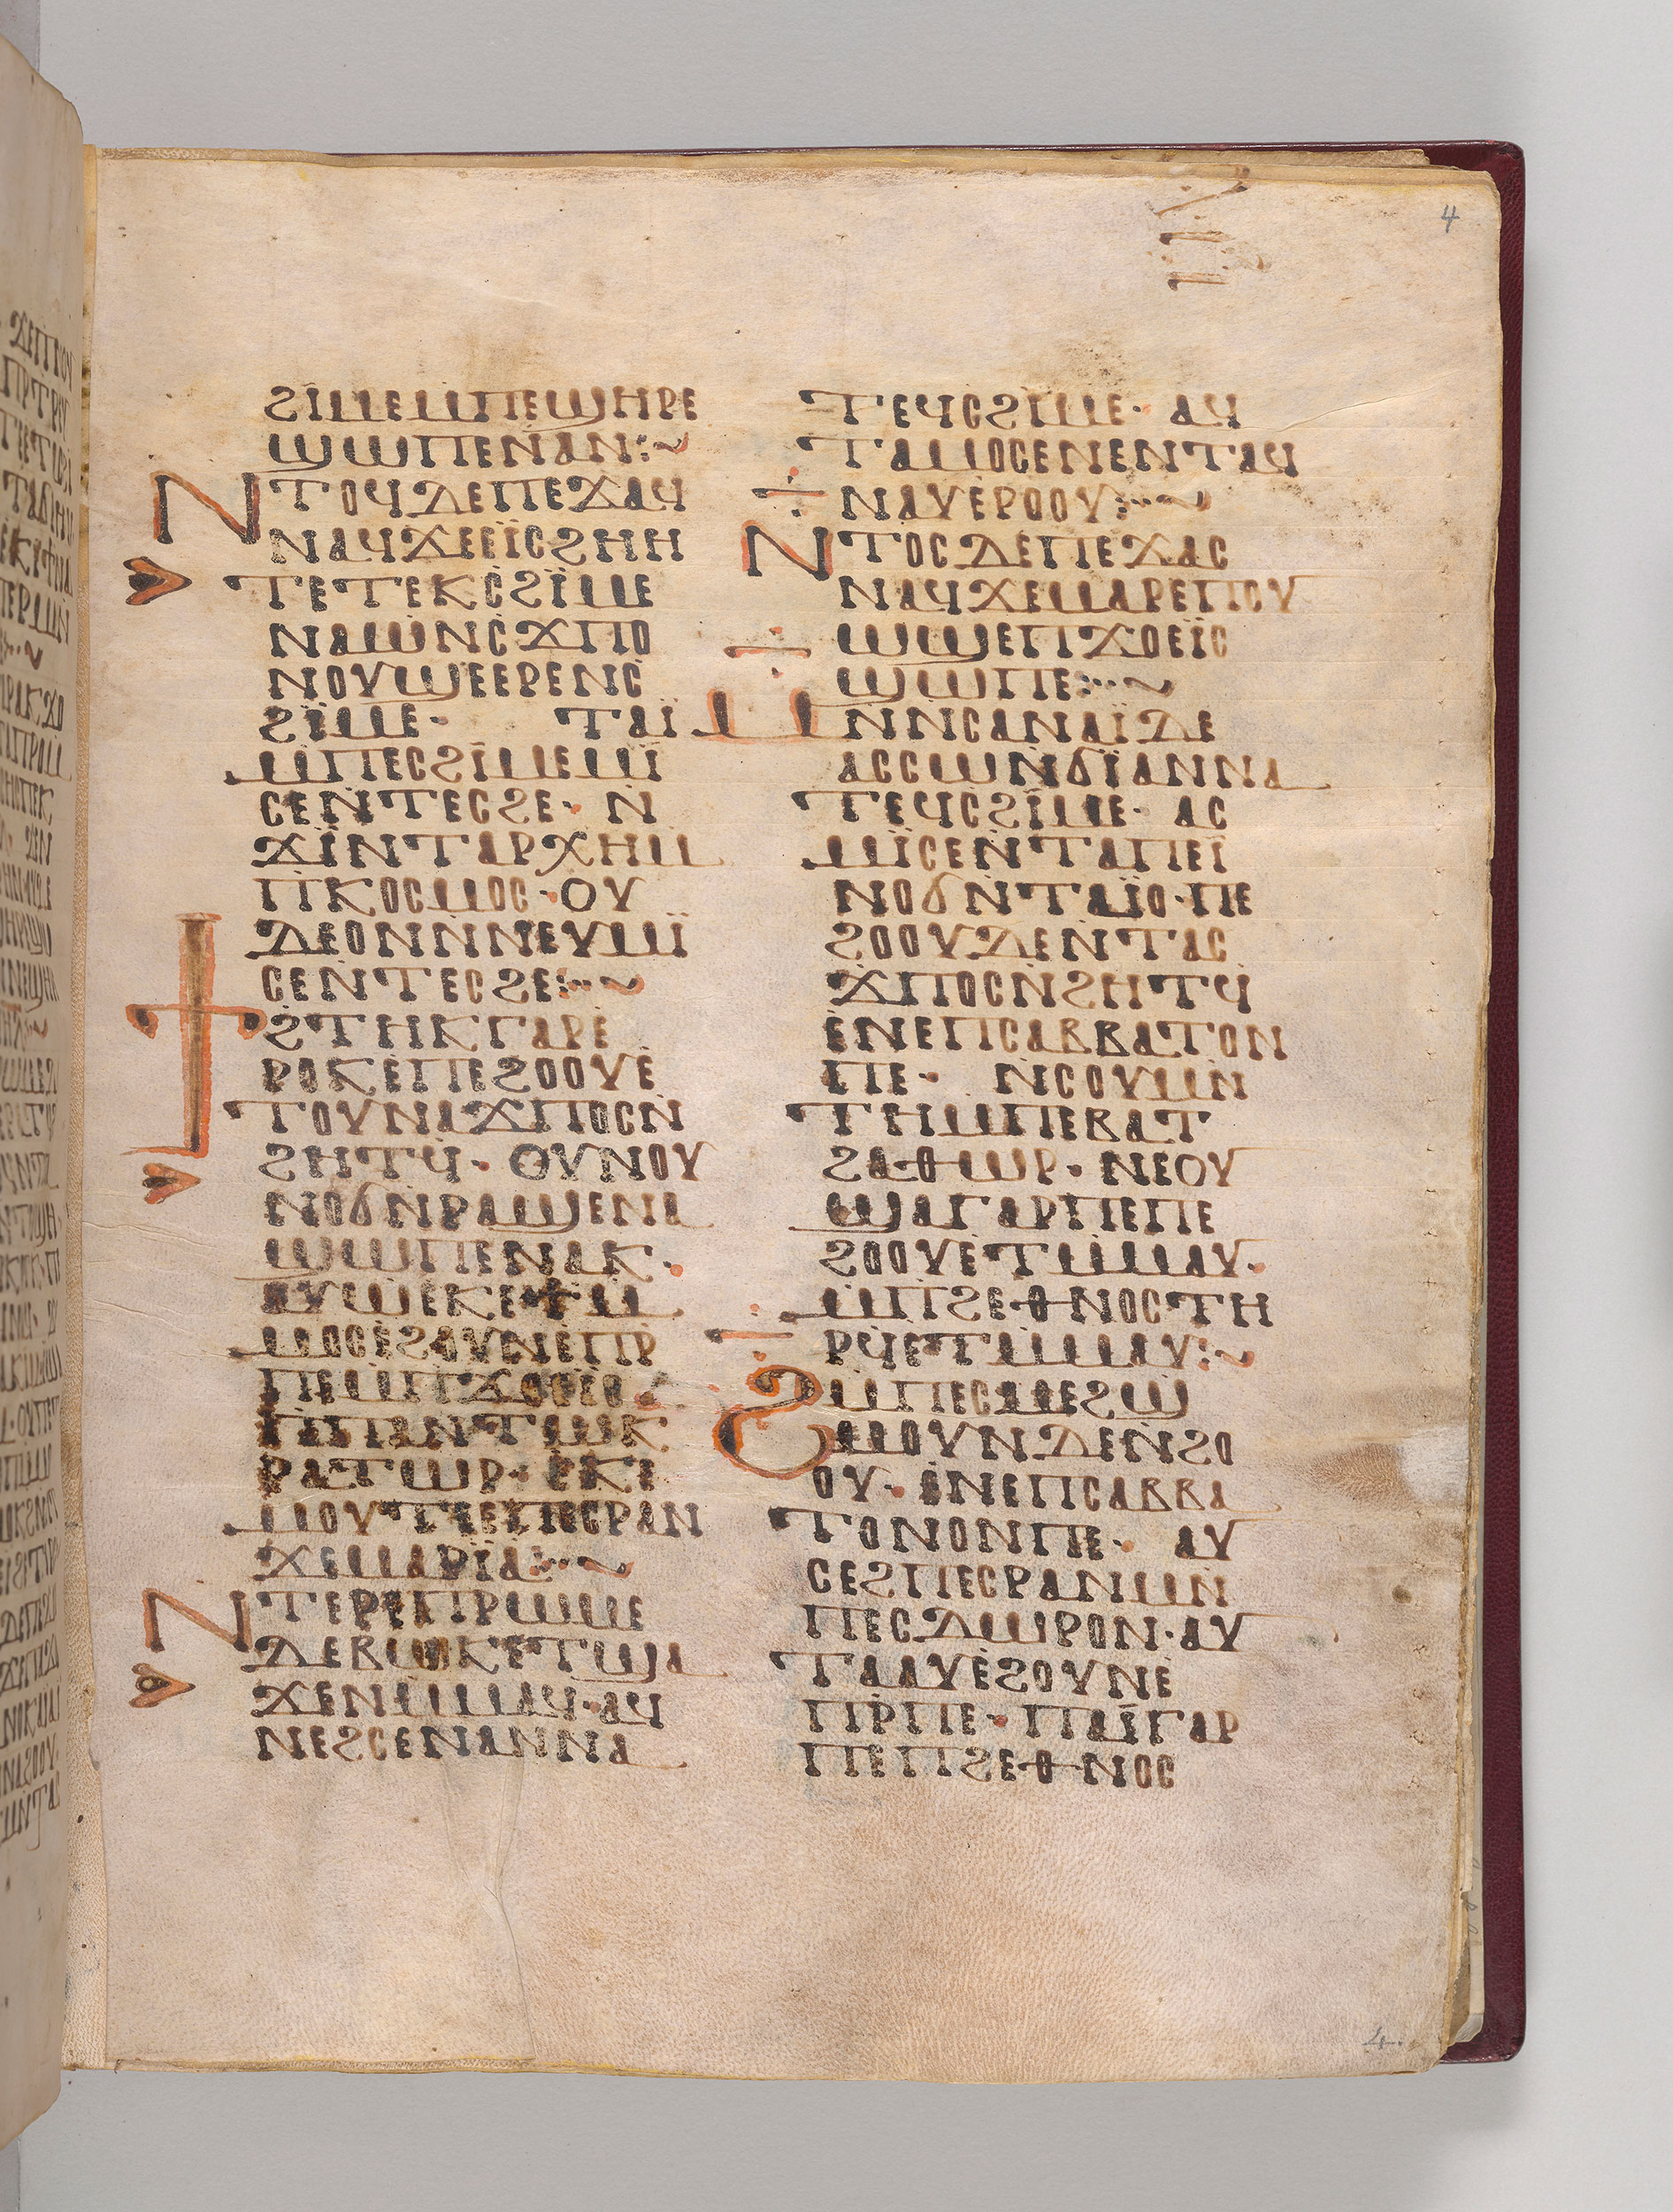 4
ϨⲒⲘⲈⲘⲠⲈϢⲎⲢⲈ
ϢⲰⲠⲈⲚⲀⲚ:~
ⲚⲦⲞϤⲆⲈⲠⲈϪⲀϤ
ⲚⲀϤϪⲈⲈⲒ̈ⲤϨⲎⲎ
ⲦⲈⲦⲈⲔⲤϨⲒ̈ⲘⲈ
ⲚⲀⲰⲚ̇ⲤϪⲠⲞ
ⲚⲞⲨϢⲈⲈⲢⲈⲚⲤ
ϨⲒ̈ⲘⲈ· ⲦⲀⲒ̈
ⲘⲠⲈⲤϨⲒⲘⲈⲘⲒ
ⲤⲈⲚⲦⲈⲤϨⲈ· Ⲛ̇
ϪⲒ̇ⲚⲦⲀⲢⲬⲎⲘ
ⲠⲔⲞⲤⲘⲞⲤ·ⲞⲨ
ⲆⲈⲞⲚⲚ̇ⲚⲈⲨⲘⲒ̈
ⲤⲈⲚⲦⲈⲤϨⲈ:··~
ϮϨⲦⲎⲔⲄⲀⲢⲈ̇
ⲢⲞⲔⲈ̇ⲠⲈϨⲞⲞⲨⲈ̇
ⲦⲞⲨⲚⲀϪⲠⲞⲤⲚ̇
ϨⲎⲦϤ· ⲞⲨⲚⲞⲨ
ⲚⲞϬⲚ̇ⲢⲀϢⲈⲚⲀ
ϢⲰⲠⲈⲚⲀⲔ·
ⲀⲨⲰⲈⲔⲈϮⲘ
ⲘⲞⲤⲈ̇ϨⲞⲨⲚⲈ̇ⲠⲢ
ⲠⲈⲘⲠϪⲞⲈⲒ̈Ⲥ
ⲠⲠⲀⲚⲦⲰⲔ
ⲢⲀⲦⲰⲢ· ⲈⲔⲈ
ⲘⲞⲨⲦⲈⲈⲠⲈⲤⲢⲀⲚ
ϪⲈⲘⲀⲢⲒ̈Ⲁ:··~
ⲚⲦⲈⲢⲈⲠⲢⲰⲘⲈ
ⲆⲈⲂⲰⲔⲈ̇ⲦϢⲀ
ϪⲈⲚⲘⲘⲀϤ·ⲀϤ
ⲚⲈϨⲤⲈⲚⲀⲚⲚⲀ
ⲦⲈϤⲤϨⲒ̇ⲘⲈ· ⲀϤ
ⲦⲀⲘⲞⲤⲈⲚⲈⲚⲦⲀϤ
ⲚⲀⲨⲈ̇ⲢⲞⲞⲨ:··~
ⲚⲦⲞⲤⲆⲈⲠⲈϪⲀⲤ
ⲚⲀϤϪⲈⲘⲀⲢⲈⲠⲞⲨ
ⲰϢⲈⲠϪⲞⲈⲒ̈Ⲥ
ϢⲰⲠⲈ:··~
ⲘⲚ̇ⲚⲤⲀⲚⲀⲒ̈ⲆⲈ
ⲀⲤⲤⲰⲚϬⲒ̇ⲀⲚⲚⲀ
ⲦⲈϤⲤϨⲒ̇ⲘⲈ· ⲀⲤ
ⲘⲒ̈ⲤⲈⲚ̇ⲦⲀⲠⲈⲒ̈
ⲚⲞϬⲚ̇ⲦⲀⲒ̈Ⲟ·ⲠⲈ
ϨⲞⲞⲨⲆⲈⲚⲦⲀⲤ
ϪⲠⲞⲤⲚ̇ϨⲎⲦϤ
Ⲉ̇ⲚⲈⲠⲤⲀⲂⲂⲀⲦⲞⲚ
ⲠⲈ· Ⲛ̇ⲤⲞⲨⲘⲚ̇
ⲦⲎⲘⲠⲈⲂⲀⲦ
ϨⲀⲐⲰⲢ· ⲚⲈⲞⲨ
ϢⲀⲄⲀⲢⲠⲈⲠⲈ
ϨⲞⲞⲨⲈ̇ⲦⲘ̇ⲘⲀⲨ·
ⲘⲠϨⲈⲐⲚⲞⲤⲦⲎ
ⲢϤⲈ̇ⲦⲘ̇ⲘⲀⲨ:~
ϨⲘ̇ⲠⲈⲤⲘⲈϨϢ
ⲘⲞⲨⲚⲆⲈⲚ̇ϨⲞ
ⲞⲨ· ⲈⲚⲈⲠⲤⲀⲂⲂⲀ
ⲦⲞⲚⲞⲚⲠⲈ· ⲀⲨ
ⲤⲈϨⲠⲈⲤⲢⲀⲚⲘⲚ̇
ⲠⲈⲤⲆⲰⲢⲞⲚ·ⲀⲨ
ⲦⲀⲀⲨⲈ̇ϨⲞⲨⲚⲈ̇
ⲠⲢⲠⲈ·ⲠⲀⲒ̈ⲄⲀⲢ
ⲠⲈⲠϨⲈⲐⲚⲞⲤ
4.